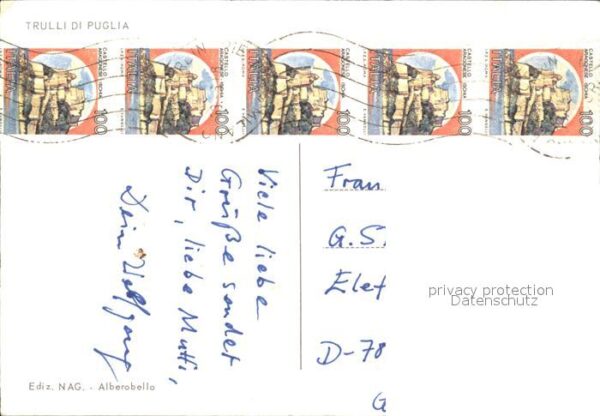 TRULLI DI PUGLIA
CASTELLO ARAGONESE ISCHIA
100
ITALIA
CASTELLO ARAGONESE ISCHIA
100
ITALIA
CASTELLO ARAGONESE ISCHIA
100
ITALIA
CASTELLO ARAGONESE ISCHIA
100
ITALIA
CASTELLO ARAGONESE ISCHIA
100
ITALIA
Viele liebe
Grüße sendet
Dir, liebe Mutti,
Dein Wolfgang
Frau
G.S.
Elef
D-78
G
privacy protection
Datenschutz
Ediz. NAG. - Alberobello